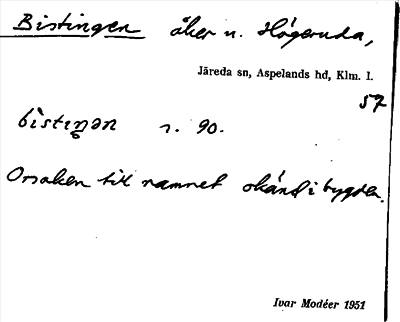 Bistingen åker n. Högeruda,
Järeda sn, Aspelands hd, Klm. l.
57
bìstiŋən r. 90.
Orsaken till namnet okänd i bygden.
Ivar Modéer 1951